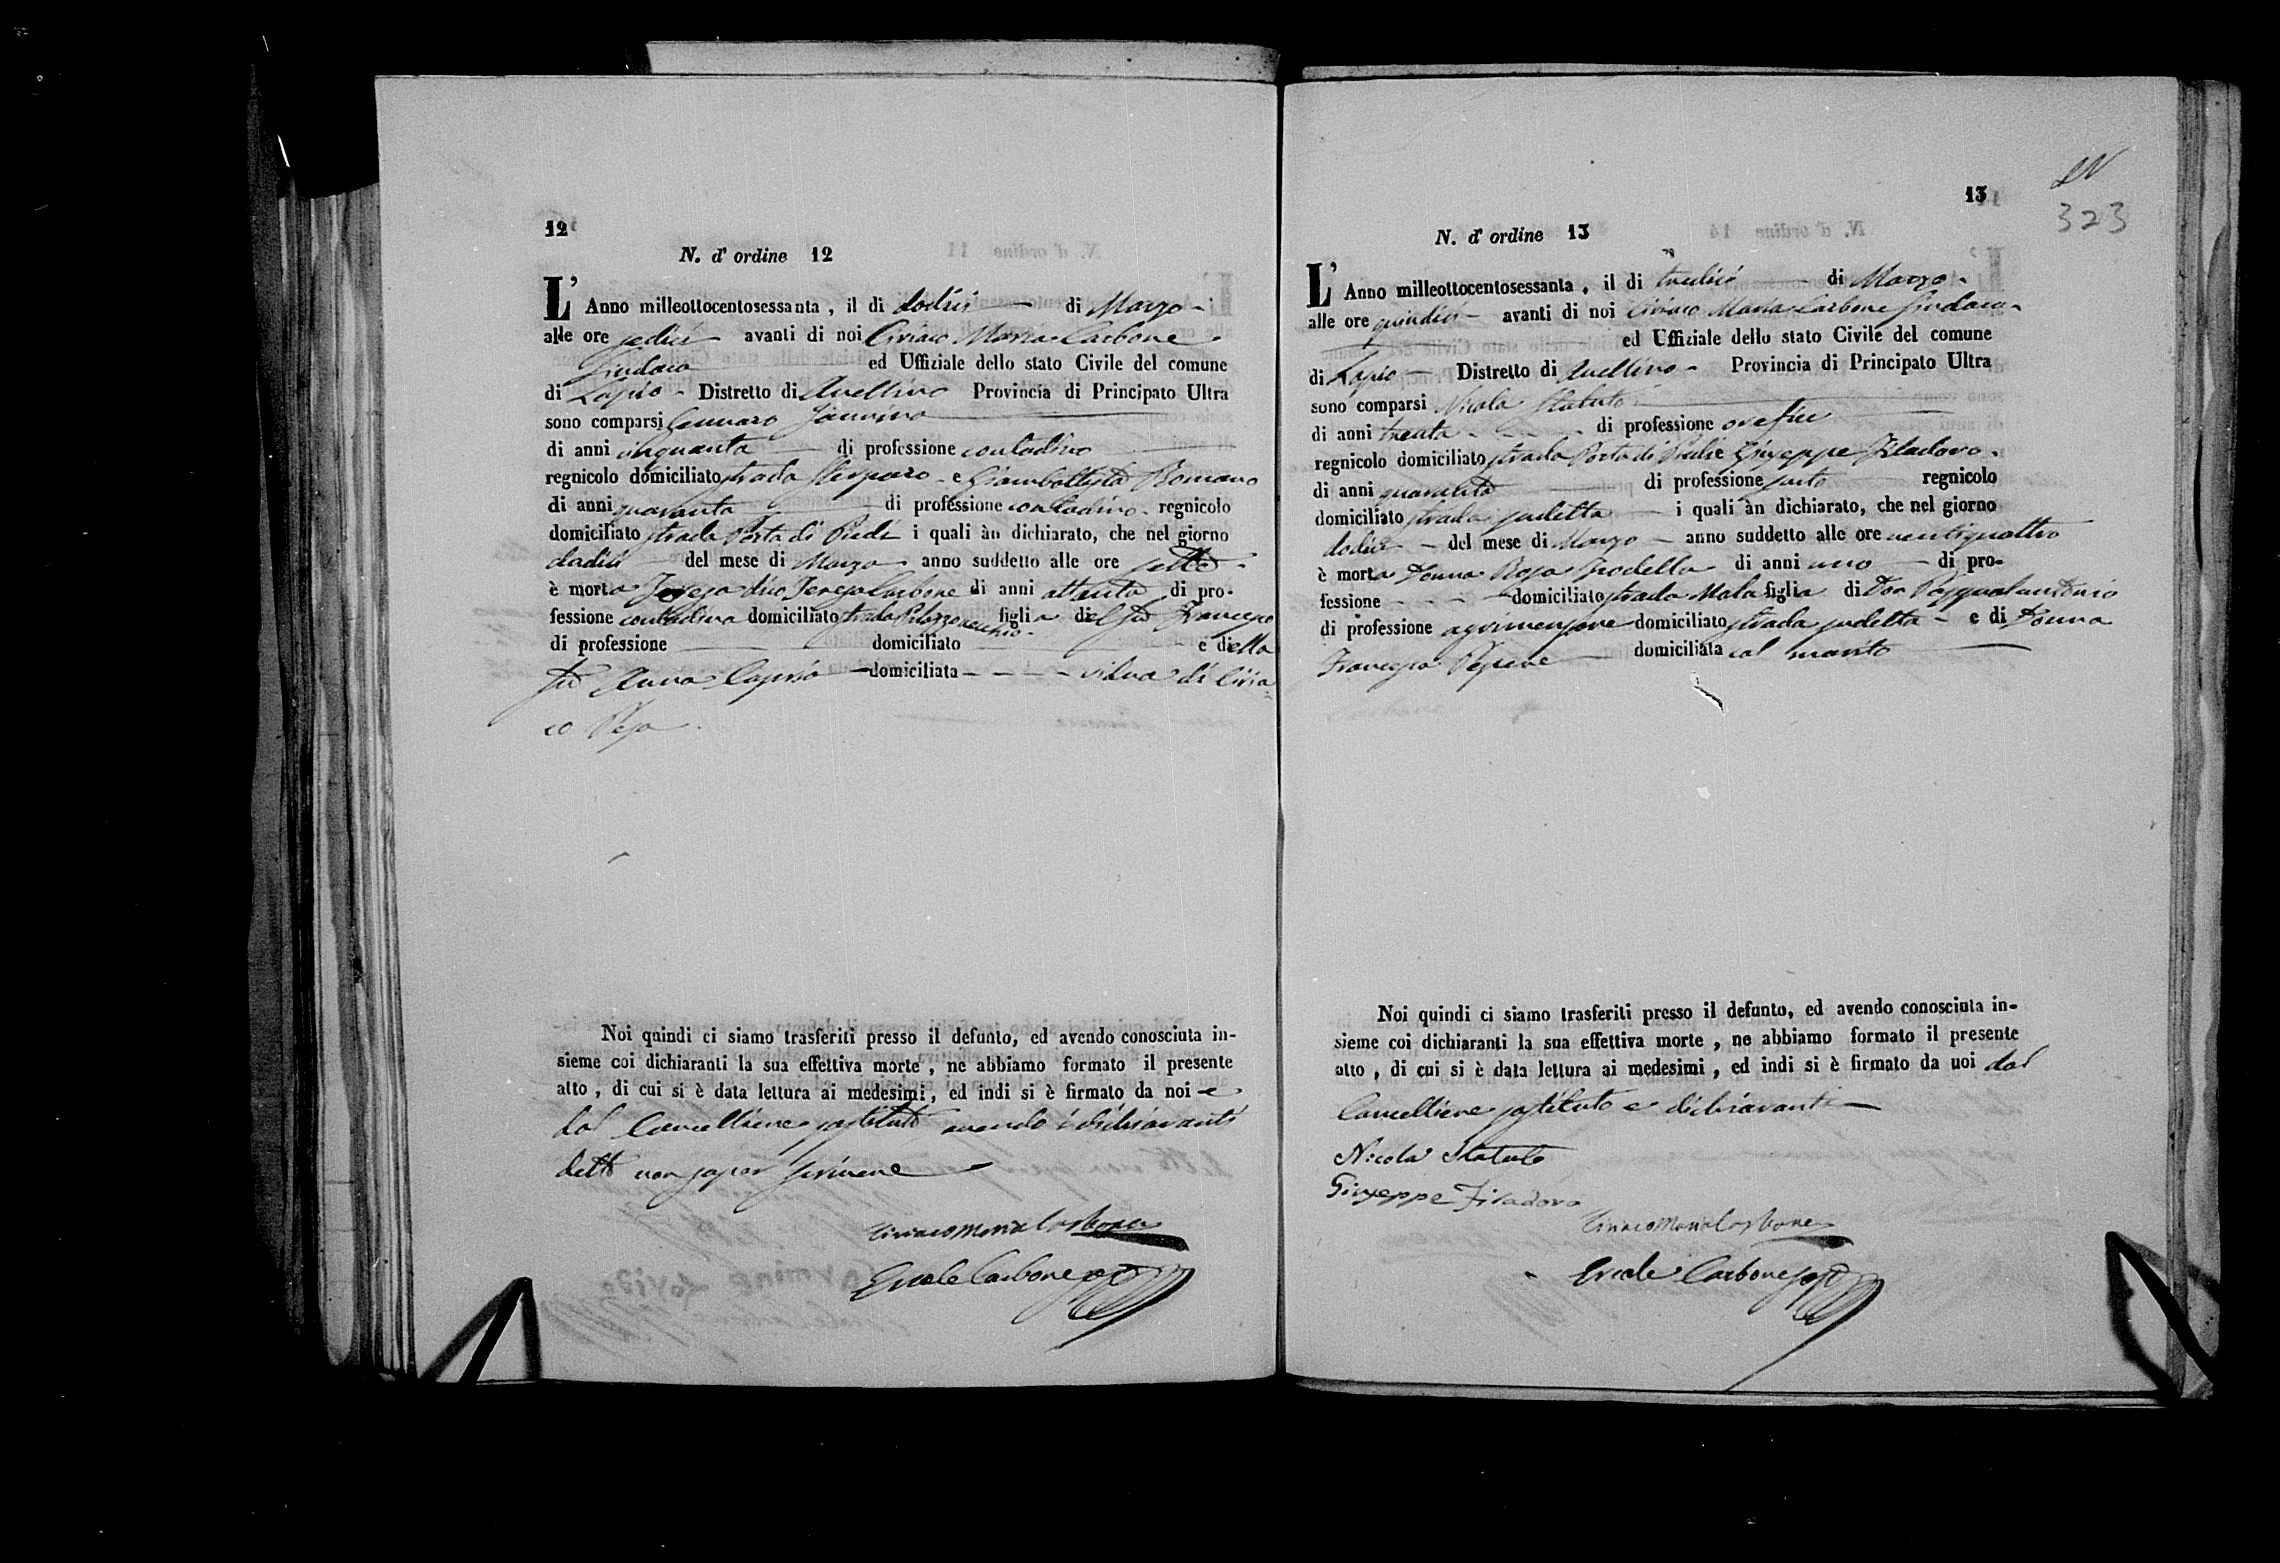 12
N. d' ordine 12
L' Anno milleottocentosessanta, il di dodici di Marzo
alle ore sedici avanti di noi Ciriaco Maria Carbone
Sindaco ed Uffiziale dello stato Civile del comune
di Lapio Distretto di Avellino Provincia di Principato Ultra
sono comparsi Gennaro
di anni cinquanta di professione contadino
regnicolo domiciliato strada e Giambattista Romano
di anni quaranta di professione contadino regnicolo
domiciliato strada Porta di Piedi i quali àn dichiarato, che nel giorno
dodici del mese di Marzo anno suddetto alle ore sette
è morta Teresa dico Teresa Carbone di anni ottanta di pro-
fessione contadina domiciliato strada Palazzo vecchio figlia del fu Francesco
di professione domiciliato e della
fu Anna Caprio domiciliata vidua di Ciria
co
Noi quindi ci siamo trasferiti presso il defunto, ed avendo conosciuta in-
sieme coi dichiaranti la sua effettiva morte, ne abbiamo formato il presente
atto, di cui si è data lettura ai medesimi, ed indi si è firmato da noi e
dal Cancelliere sostituto avendo i dichiaranti
detto non saper scrivere
Ciriaco Maria Carbone
Ercole Carbone
13
323
N. d' ordine 13
L' Anno milleottocentosessanta, il di tredici di Marzo
alle ore quindici avanti di noi Ciriaco Maria Carbone Sindaco
ed Uffiziale dello stato Civile del comune
di Lapio Distretto di Avellino Provincia di Principato Ultra
sono comparsi Nicola Statuto
di anni trenta di professione orefice
regnicolo domiciliato strada Porta di Piedi e Giuseppe Filadoro
di anni quaranta di professione sarto regnicolo
domiciliato strada sudetta i quali àn dichiarato, che nel giorno
dodici del mese di Marzo anno suddetto alle ore ventiquattro
è morta Donna Rosa di anni uno di pro-
fessione domiciliato strada Mala figlia di Don Pasqualantonio
di professione agrimensore domiciliato strada sudetta e di Donna
Francesca domiciliata col marito
Noi quindi ci siamo trasferiti presso il defunto, ed avendo conosciuta in-
sieme coi dichiaranti la sua effettiva morte, ne abbiamo formato il presente
atto, di cui si è data lettura ai medesimi, ed indi si è firmato da noi dal
Cancelliere sostituto e dichiaranti
Nicola Statuto
Giuseppe Filadoro
Ciriaco Maria Carbone
Ercole Carbone